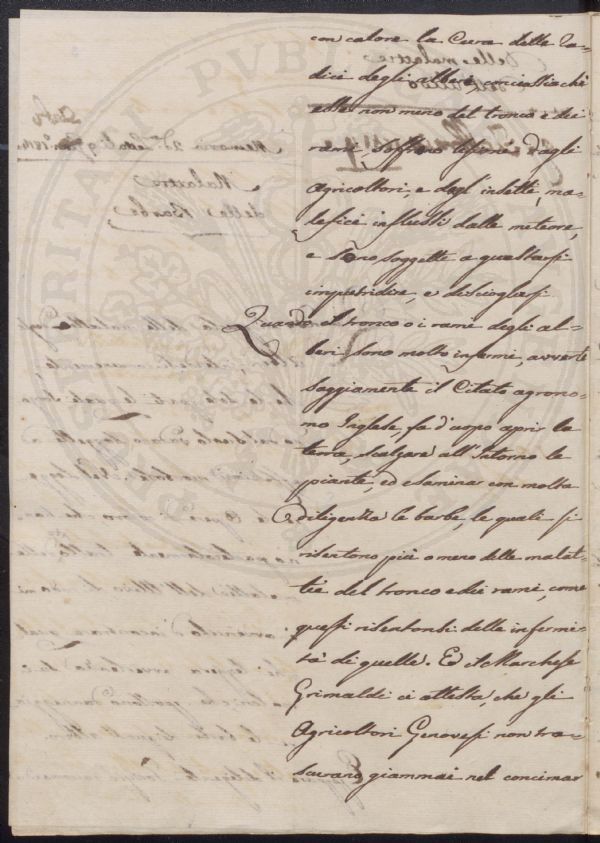 con calore la Cura delle ra-
dici degli alberi conciossiachè
esse non meno del tronco e dei
rami, soffrono lesione dagli
Agricoltori, e degl'insetti, ma-
lefici influssi dalle meteore,
e sono soggette a guastarsi
imputridire, e disciogliersi
Quando il tronco o i rami degli al-
beri sono molto infermi, avverte
saggiamente il Citato agrono-
mo Inglese, fa d'uopo aprir la
terra, scalzare all'intorno le
piante, ed esaminar con molta
diligenza le barbe, le quali si
risentono più o meno delle malat-
tie del tronco e dei rami, come
questi risentonsi delle infermi-
tà di quelle. Ed il Marchese
Grimaldi ci attesta, che gli
Agricoltori Genovesi non tra-
scurano giammai nel concimar